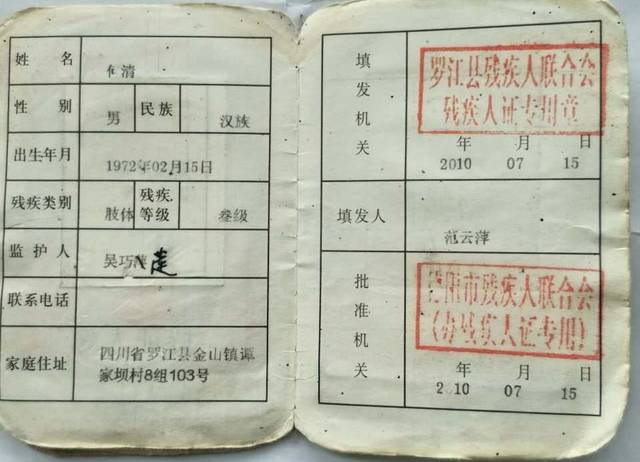 姓名 清
性别 男 民族 汉族
出生年月 1972年02月15日
残疾类别 肢体 残疾等级 叁级
监护人 吴巧
联系电话
家庭住址 四川省罗江县金山镇谭
家坝村8组103号
填发机关
罗江县残疾人联合会
残疾人证专用章
年 月 日
2010 07 15
填发人 范云萍
批准机关
德阳市残疾人联合会
(办残疾人证专用)
年 月 日
2010 07 15